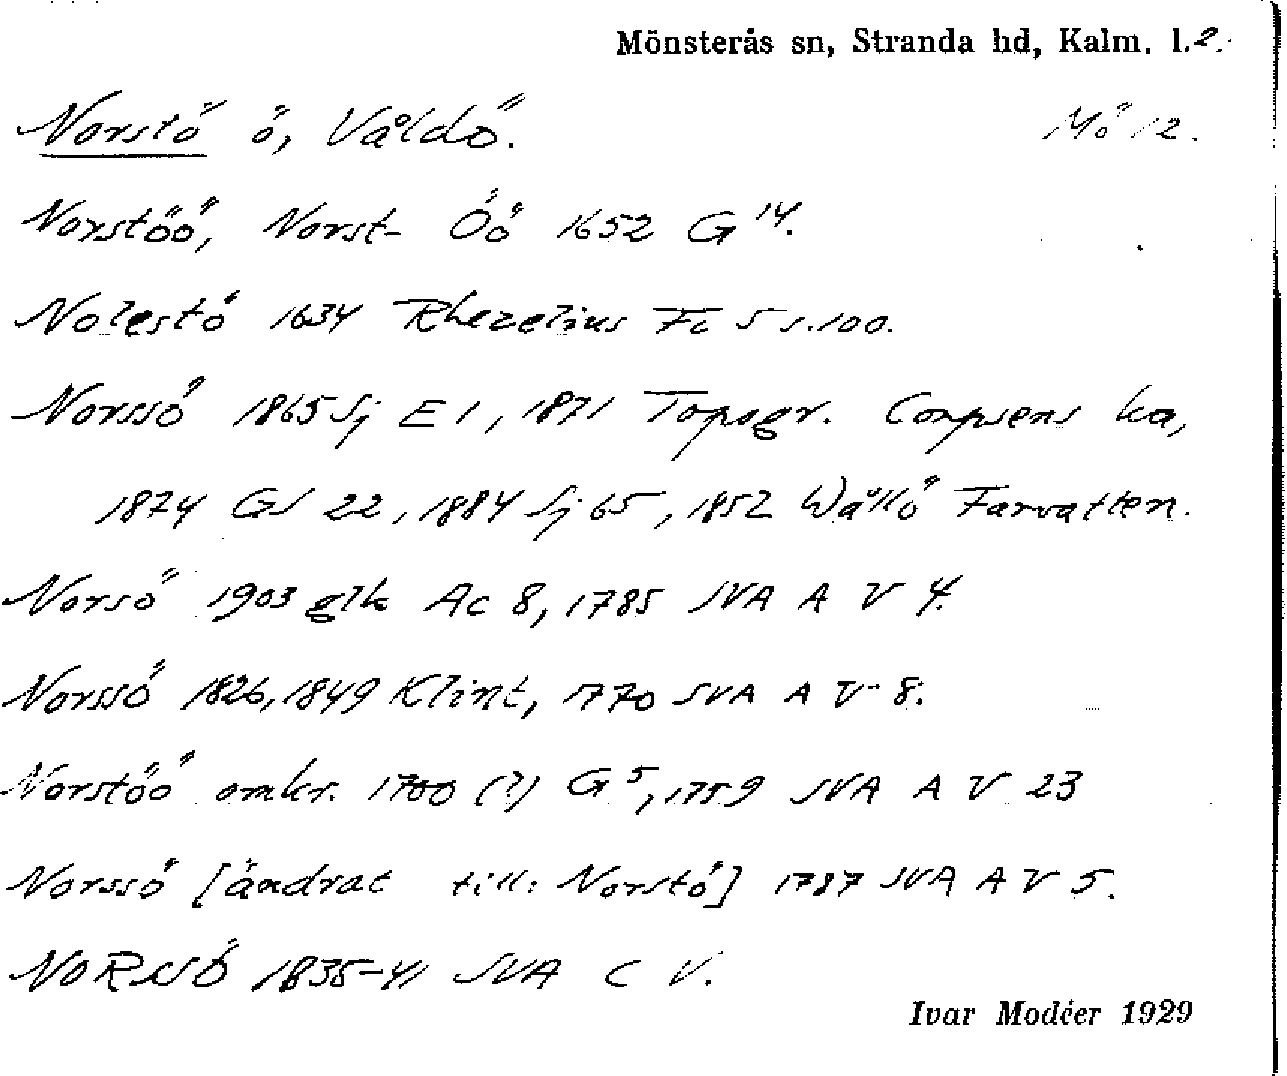 Mönsterås sn, Stranda hd, Kalm. l. 2.
Norstö ö, Våldö. Mö 12.
Norstöö, Norst- Öö 1652 G 14.
Nolestö 1634 Rhezelius Fc 5 s. 100.
Norssö 1865 Sj E 1, 1871 Topogr. Corpsens ka,
1874 GS 22, 1884 Sj 65, 1852 Wållö Farvatten.
Norsö 1903 glk Ac 8, 1785 SVA A V 4.
Norssö 1826, 1849 Klint, 1770 SVA A V 8.
Norstöö omkr. 1700 (?) G 5, 1759 SVA A V 23
Norssö [ändrat till: Norstö] 1787 SVA A V 5.
NORSSÖ 1835-41 SVA C V.
Ivar Modéer 1929